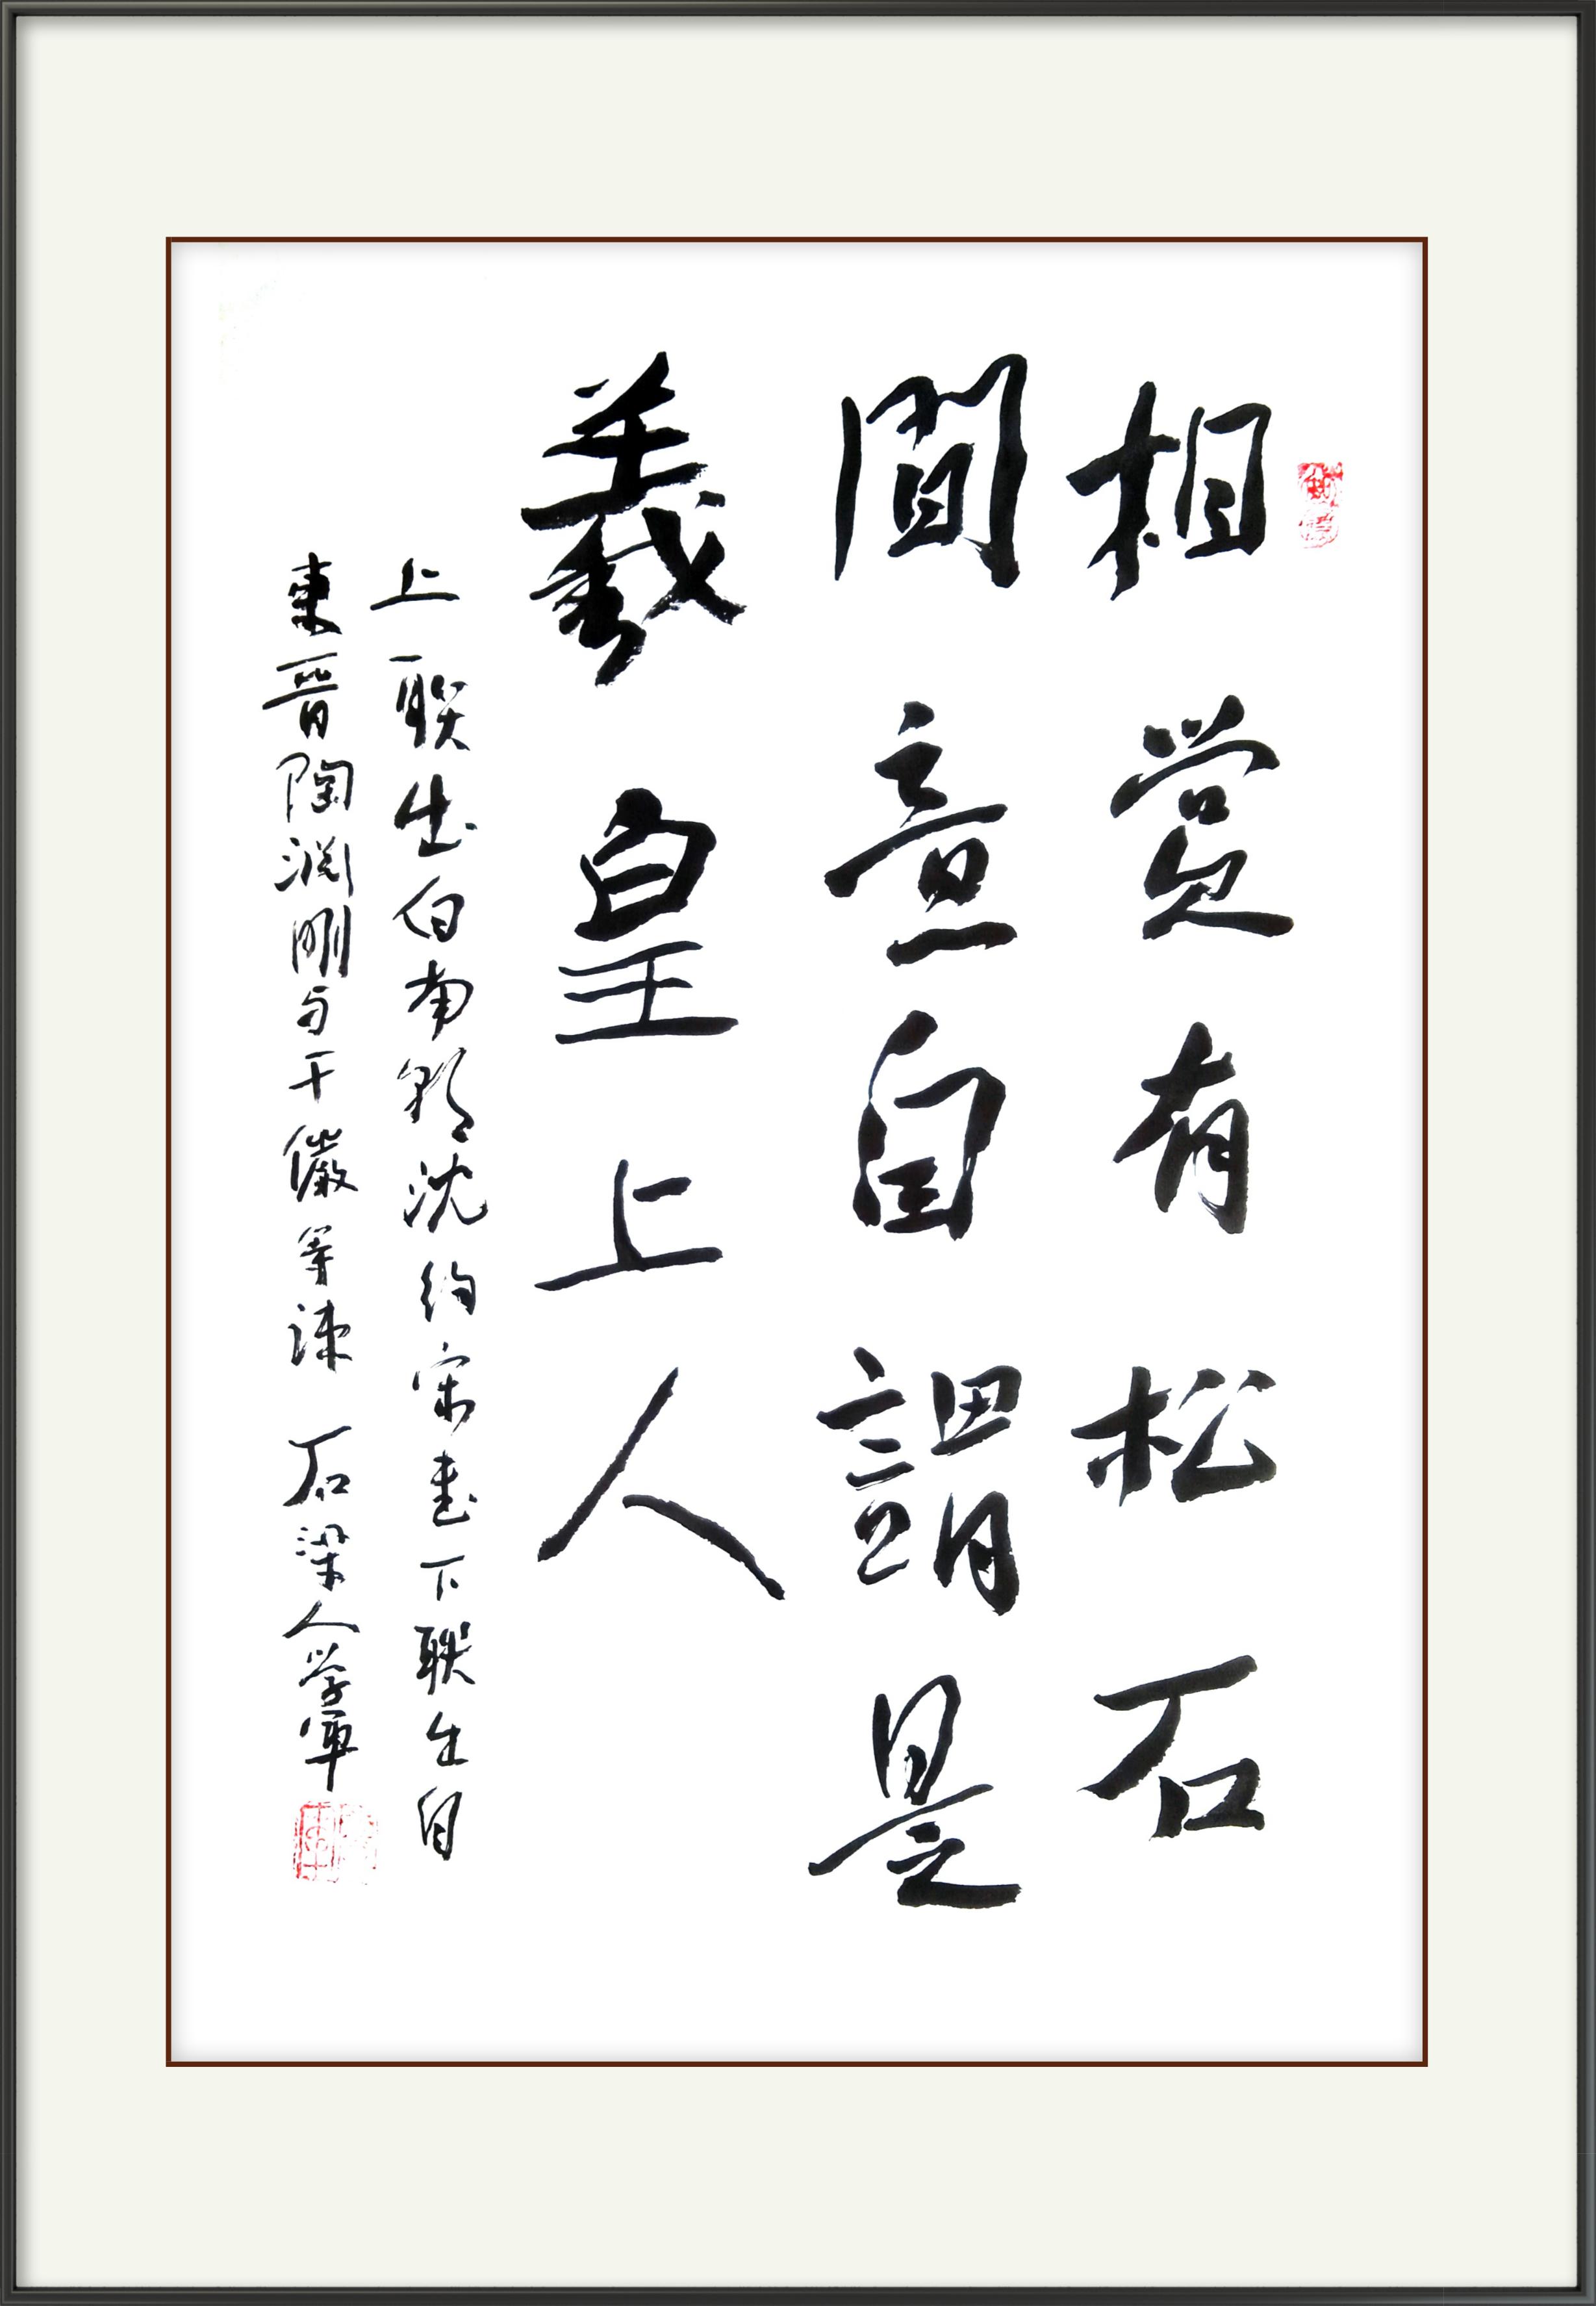 相賞有松石
間意自謂是
羲皇上人
上联出自南朝沈约宋書下联出自
東晋陶渊明与子儼等疏 石梁人学軍